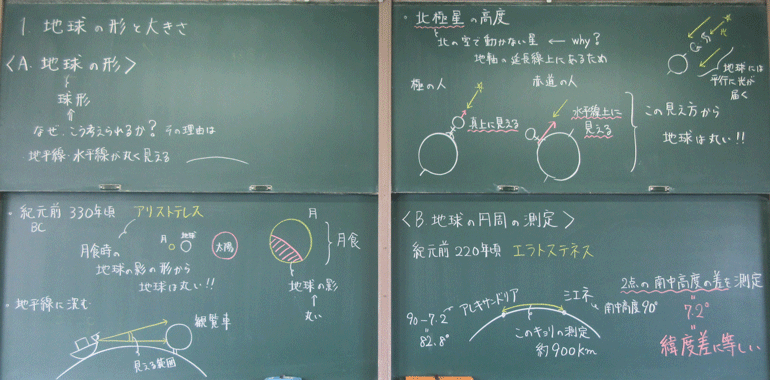 1. 地球の形と大きさ
〈A. 地球の形〉
球形
なぜ、こう考えられるか? その理由は
地平線・水平線が丸く見える
・北極星の高度
北の空で動かない星 ← why?
地軸の延長線上にあるため
光
地球には
平行に光が
届く
極の人
赤道の人
真上に見える
水平線上に
見える
この見え方から
地球は丸い!!
・紀元前330年頃 アリストテレス
BC
月食時の
地球の影の形から
地球は丸い!!
月
地球
太陽
月
月食
地球の影
丸い
・地平線に沈む
観覧車
見える範囲
〈B. 地球の円周の測定〉
紀元前220年頃 エラトステネス
アレキサンドリア
シエネ
90-7.2
"
82.8°
南中高度90°
このキョリの測定
約900km
2点の南中高度の差を測定
"
7.2°
"
緯度差に等しい